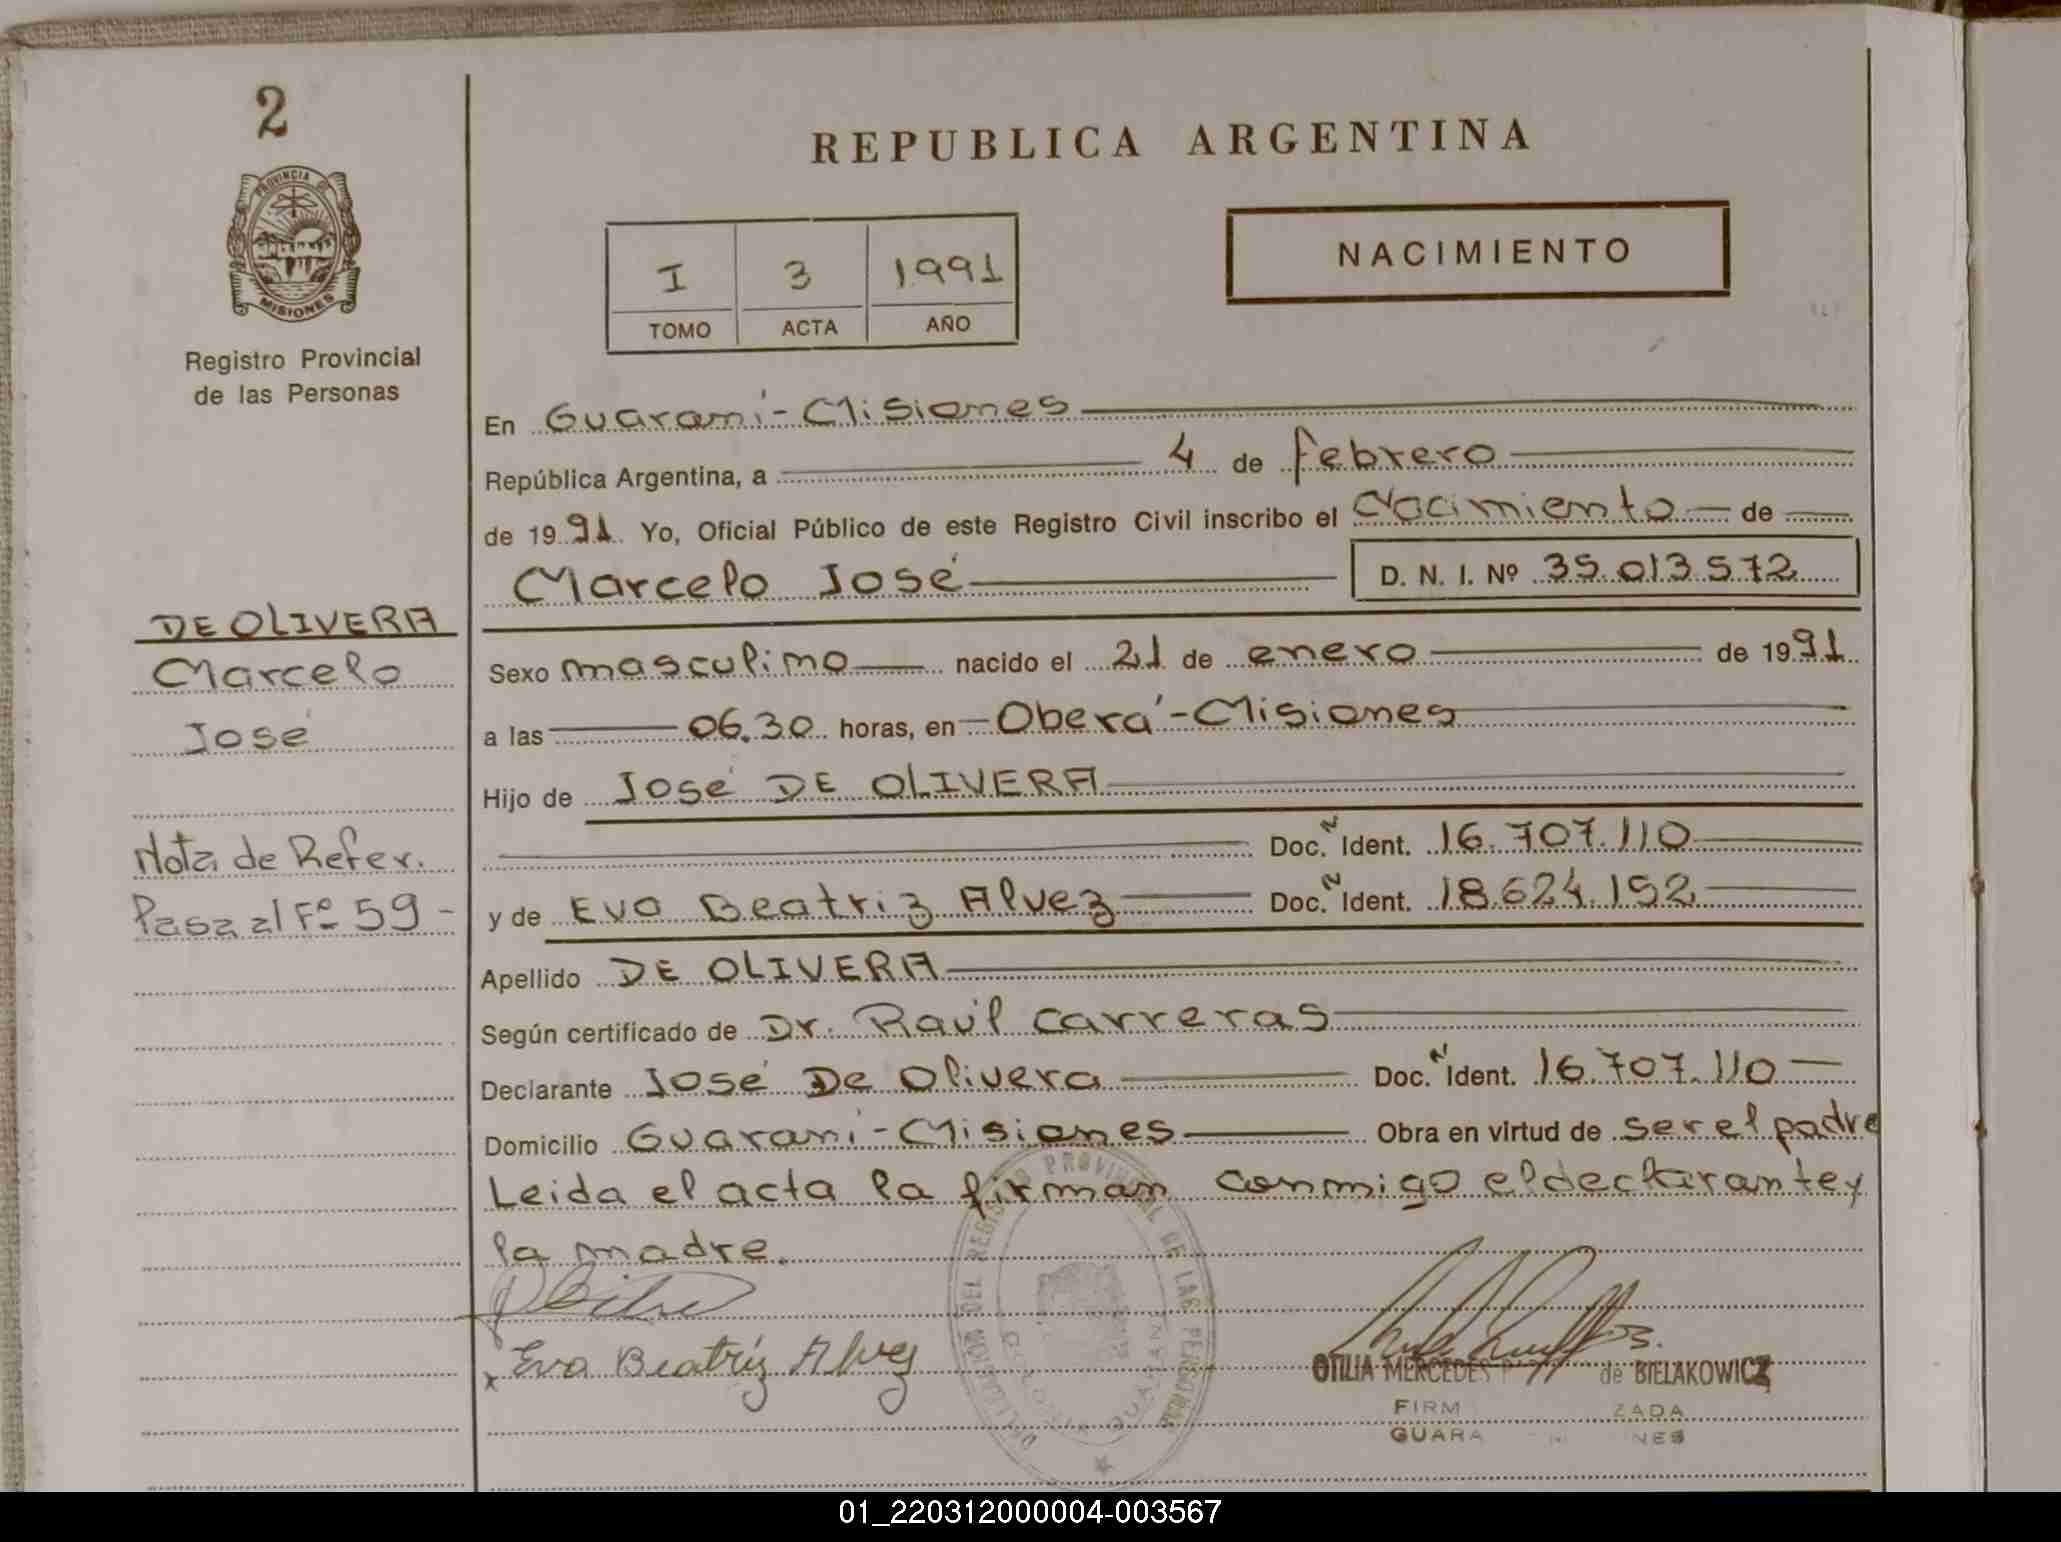 2
REPUBLICA ARGENTINA
PROVINCIA DE
MISIONES
Registro Provincial
de las Personas
I 3 1991
TOMO ACTA AÑO
NACIMIENTO
En Guaraní-Misiones
República Argentina, a 4 de febrero
de 1991 Yo, Oficial Público de este Registro Civil inscribo el Nacimiento de
Marcelo José D. N. I. Nº 35.013.572
DE OLIVERA
Marcelo
José
Nota de Refer.
Pasa al Fº 59-
Sexo masculino nacido el 21 de enero de 1991
a las 06.30 horas, en Oberá-Misiones
Hijo de José DE OLIVERA
Doc. Nº Ident. 16.707.110
y de Eva Beatriz Alvez Doc. Nº Ident. 18.624.152
Apellido DE OLIVERA
Según certificado de Dr. Raúl Carreras
Declarante José De Olivera Doc. Nº Ident. 16.707.110
Domicilio Guaraní-Misiones Obra en virtud de ser el padre
Leida el acta la firman conmigo el declarante y
la madre.
Eva Beatríz Alvez
DELEGACION DEL REGISTRO PROVINCIAL DE LAS PERSONAS
GUARANI
OTILIA MERCEDES de BIELAKOWICZ
01_220312000004-003567